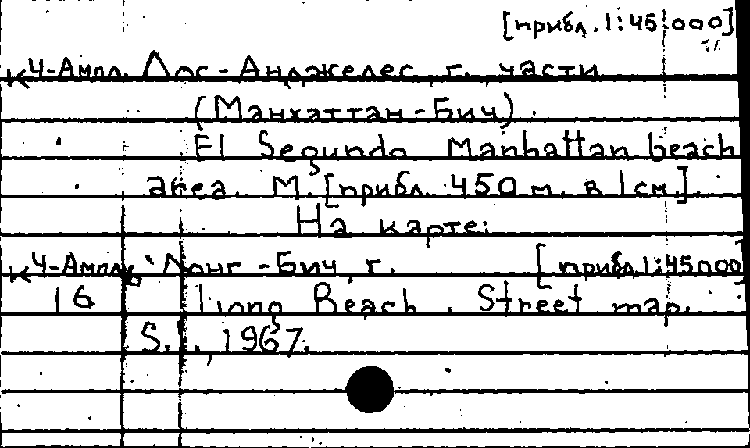 [прибл. 1:45 000]
К4-Ампл. Лос-Анджелес, г. части
(Манхаттан-Бич).
El Segundo Manhattan beach
area. М. [прибл. 450 м. в 1 см.].
На карте:
К4-Ампл. Лонг-Бич, г. [прибл. 1:45000]
16 Long Beach. Street map.
S.l., 1967.